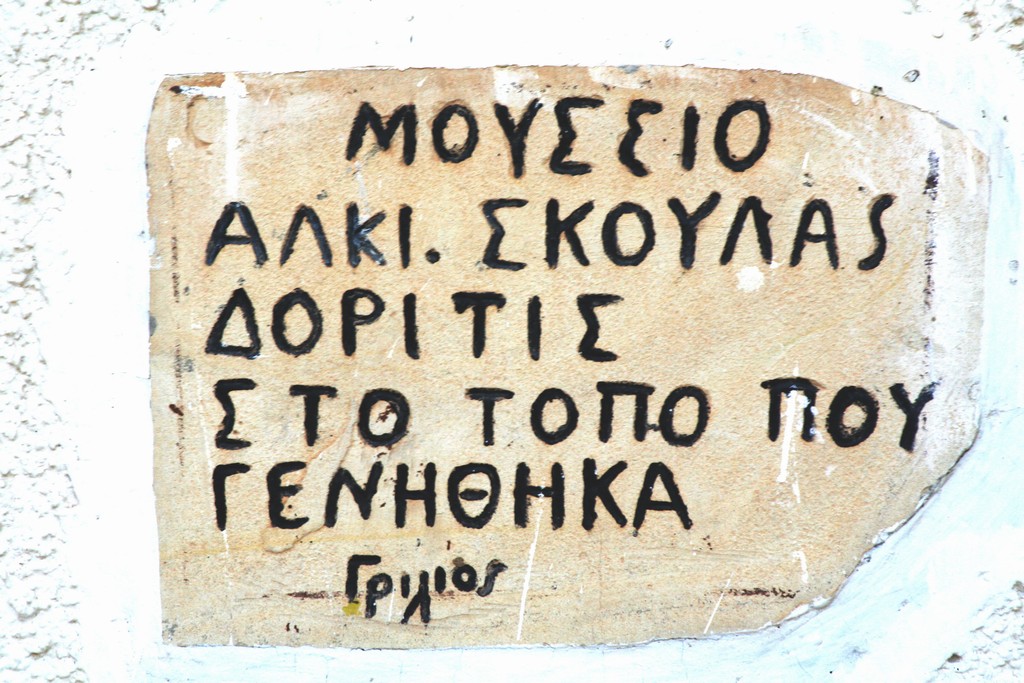 ΜΟΥΣΕΙΟ
ΑΛΚΙ. ΣΚΟΥΛΑS
ΔΟΡΙ ΤΙΣ
ΣΤΟ ΤΟΠΟ ΠΟΥ
ΓΕΝΗΘΗΚΑ
Γριλιος